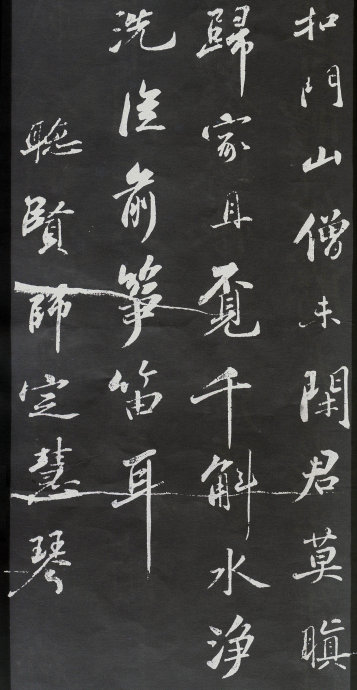 扣門山僧未閑君莫瞋
歸家且覓千斛水淨
洗從前箏笛耳
聽賢師定慧琴